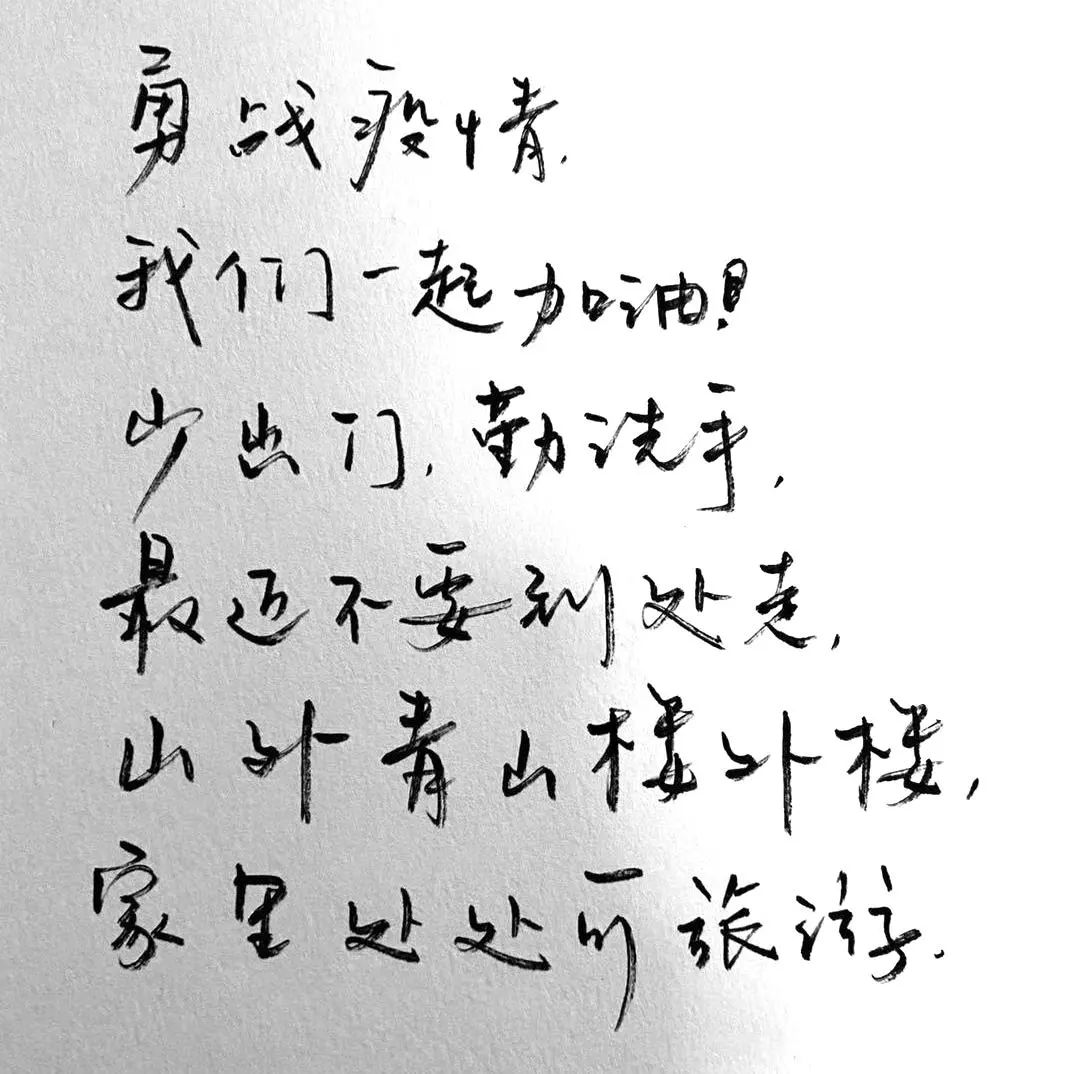 勇战疫情,
我们一起加油!
少出门,勤洗手,
最近不要到处走,
山外青山楼外楼,
家里处处可旅游.